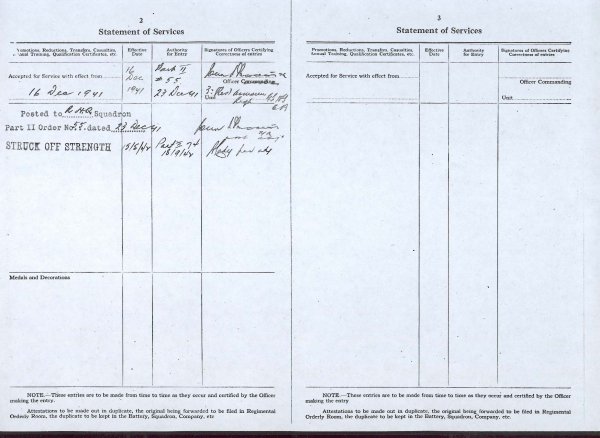 2
Statement of Services
Promotions, Reductions, Transfers, Casualties, Annual Training, Qualification Certificates, etc.
Effective Date
Authority for Entry
Signatures of Officers Certifying Correctness of entries
Accepted for Service with effect from
16 Dec 1941
16 Dec 1941
Part II
# 55
23 Dec 41
Officer Commanding
Unit
Posted to R.H.Q. Squadron
Part II Order No. 55 dated 23 Dec 41
STRUCK OFF STRENGTH
Medals and Decorations
NOTE.—These entries are to be made from time to time as they occur and certified by the Officer
making the entry.
Attestations to be made out in duplicate, the original being forwarded to be filed in Regimental
Orderly Room, the duplicate to be kept in the Battery, Squadron, Company, etc
3
Statement of Services
Promotions, Reductions, Transfers, Casualties, Annual Training, Qualification Certificates, etc.
Effective Date
Authority for Entry
Signatures of Officers Certifying Correctness of entries
Accepted for Service with effect from
Officer Commanding
Unit
NOTE.—These entries are to be made from time to time as they occur and certified by the Officer
making the entry
Attestations to be made out in duplicate, the original being forwarded to be filed in Regimental
Orderly Room, the duplicate to be kept in the Battery, Squadron, Company, etc.